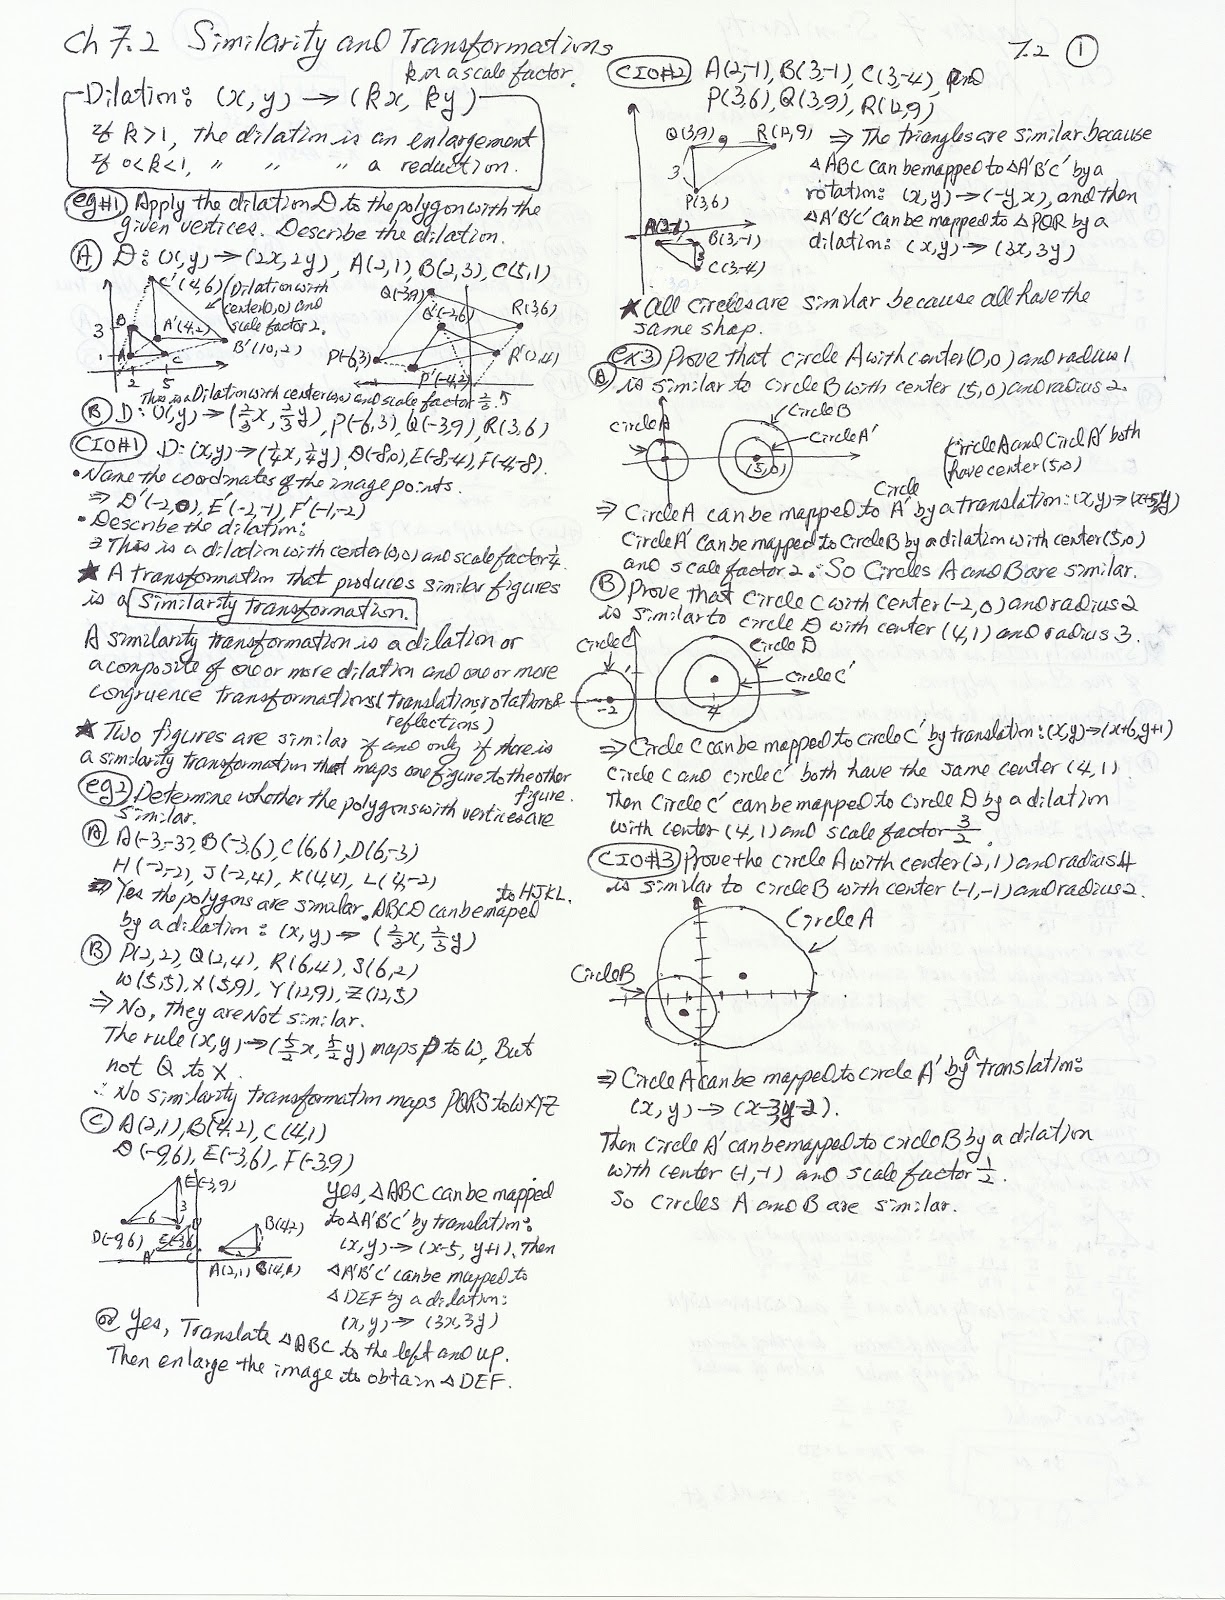 Ch 7.2 Similarity and Transformations
k is a scale factor.
Dilation: (x, y) → (kx, ky)
If k>1, the dilation is an enlargement
If 0<k<1, " " " a reduction.
eg#1 Apply the dilation D to the polygon with the
given vertices. Describe the dilation.
Ⓐ D: (x, y) → (2x, 2y), A(2,1), B(2,3), C(5,1)
C'(4,6) (Dilation with
center(0,0) and
scale factor 2.
3
B
A'(4,2)
B'(10,2)
1
A
C
2 5
Q(-3,9)
Q'(-2,6)
R(3,6)
P(-6,3)
R'(2,4)
P'(-4,2)
This is a Dilation with center(0,0) and scale factor 2/3.
Ⓑ D: (x, y) → (2/3x, 2/3y), P(-6,3), Q(-3,9), R(3,6)
CIO#1 D: (x,y) → (1/4x, 1/4y), D(-8,0), E(-8,-4), F(-4,-8).
• Name the coordinates of the image points.
⇒ D'(-2,0), E'(-2,-1), F'(-1,-2)
• Describe the dilation:
⇒ This is a dilation with center(0,0) and scale factor 1/4.
★ A transformation that produces similar figures
is a Similarity transformation.
A similarity transformation is a dilation or
a composite of one or more dilation and one or more
congruence transformations (translations, rotations &
reflections)
★ Two figures are similar if and only if there is
a similarity transformation that maps one figure to the other
figure.
eg2 Determine whether the polygons with vertices are
similar.
Ⓐ A(-3,-3), B(-3,6), C(6,6), D(6,-3)
H(-2,-2), J(-2,4), K(4,4), L(4,-2)
⇒ Yes the polygons are similar. ABCD can be maped to HJKL.
by a dilation: (x,y) → (2/3x, 2/3y)
Ⓑ P(2,2), Q(2,4), R(6,4), S(6,2)
W(5,5), X(5,9), Y(12,9), Z(12,5)
⇒ No, They are Not similar.
The rule (x,y) → (5/2x, 5/2y) maps P to W, But
not Q to X.
∴ No similarity transformation maps PQRS to WXYZ
Ⓒ A(2,1), B(4,2), C(4,1)
D(-9,6), E(-3,6), F(-3,9)
E(-3,9)
3
6
D(-9,6)
E(-3,6)
A'
B(4,2)
2
A(2,1) C(4,1)
Yes, △ABC can be mapped
to △A'B'C' by translation:
(x,y) → (x-5, y+1). Then
△A'B'C' can be mapped to
△DEF by a dilation:
(x,y) → (3x,3y)
or Yes, Translate △ABC to the left and up.
Then enlarge the image to obtain △DEF.
7.2 ①
CIO#2 A(2,-1), B(3,-1), C(3,-4) and
P(3,6), Q(3,9), R(12,9)
Q(3,9) 9 R(12,9)
3
P(3,6)
B(3,-1)
3
C(3,-4)
⇒ The triangles are similar because
△ABC can be mapped to △A'B'C' by a
rotation: (x,y) → (-y,x), and then
△A'B'C' can be mapped to △PQR by a
dilation: (x,y) → (3x,3y)
★ All circles are similar because all have the
same shap.
ex3 Prove that circle A with center(0,0) and radius 1
Ⓐ is similar to circle B with center (5,0) and radius 2.
Circle A
Circle B
Circle A'
(5,0)
(Circle A and Circl A' both
have center(5,0)
Circle
⇒ Circle A can be mapped to A' by a translation: (x,y) → (x+5,y)
Circle A' can be mapped to Circle B by a dilation with center (5,0)
and scale factor 2. So Circles A and B are similar.
Ⓑ Prove that circle C with center (-2,0) and radius 2
is similar to circle D with center (4,1) and radius 3.
Circle C
Circle D
Circle C'
-2
4
⇒ Circle C can be mapped to circle C' by translation: (x,y) → (x+6,y+1)
Circle C and circle C' both have the same center (4,1)
Then Circle C' can be mapped to Circle D by a dilation
with center (4,1) and scale factor 3/2.
CIO#3 Prove the circle A with center (2,1) and radius 4
is similar to circle B with center (-1,-1) and radius 2.
Circle A
Circle B
⇒ Circle A can be mapped to circle A' by a translation:
(x,y) → (x-3,y-2).
Then Circle A' can be mapped to circle B by a dilation
with center (-1,-1) and scale factor 1/2.
So Circles A and B are similar.